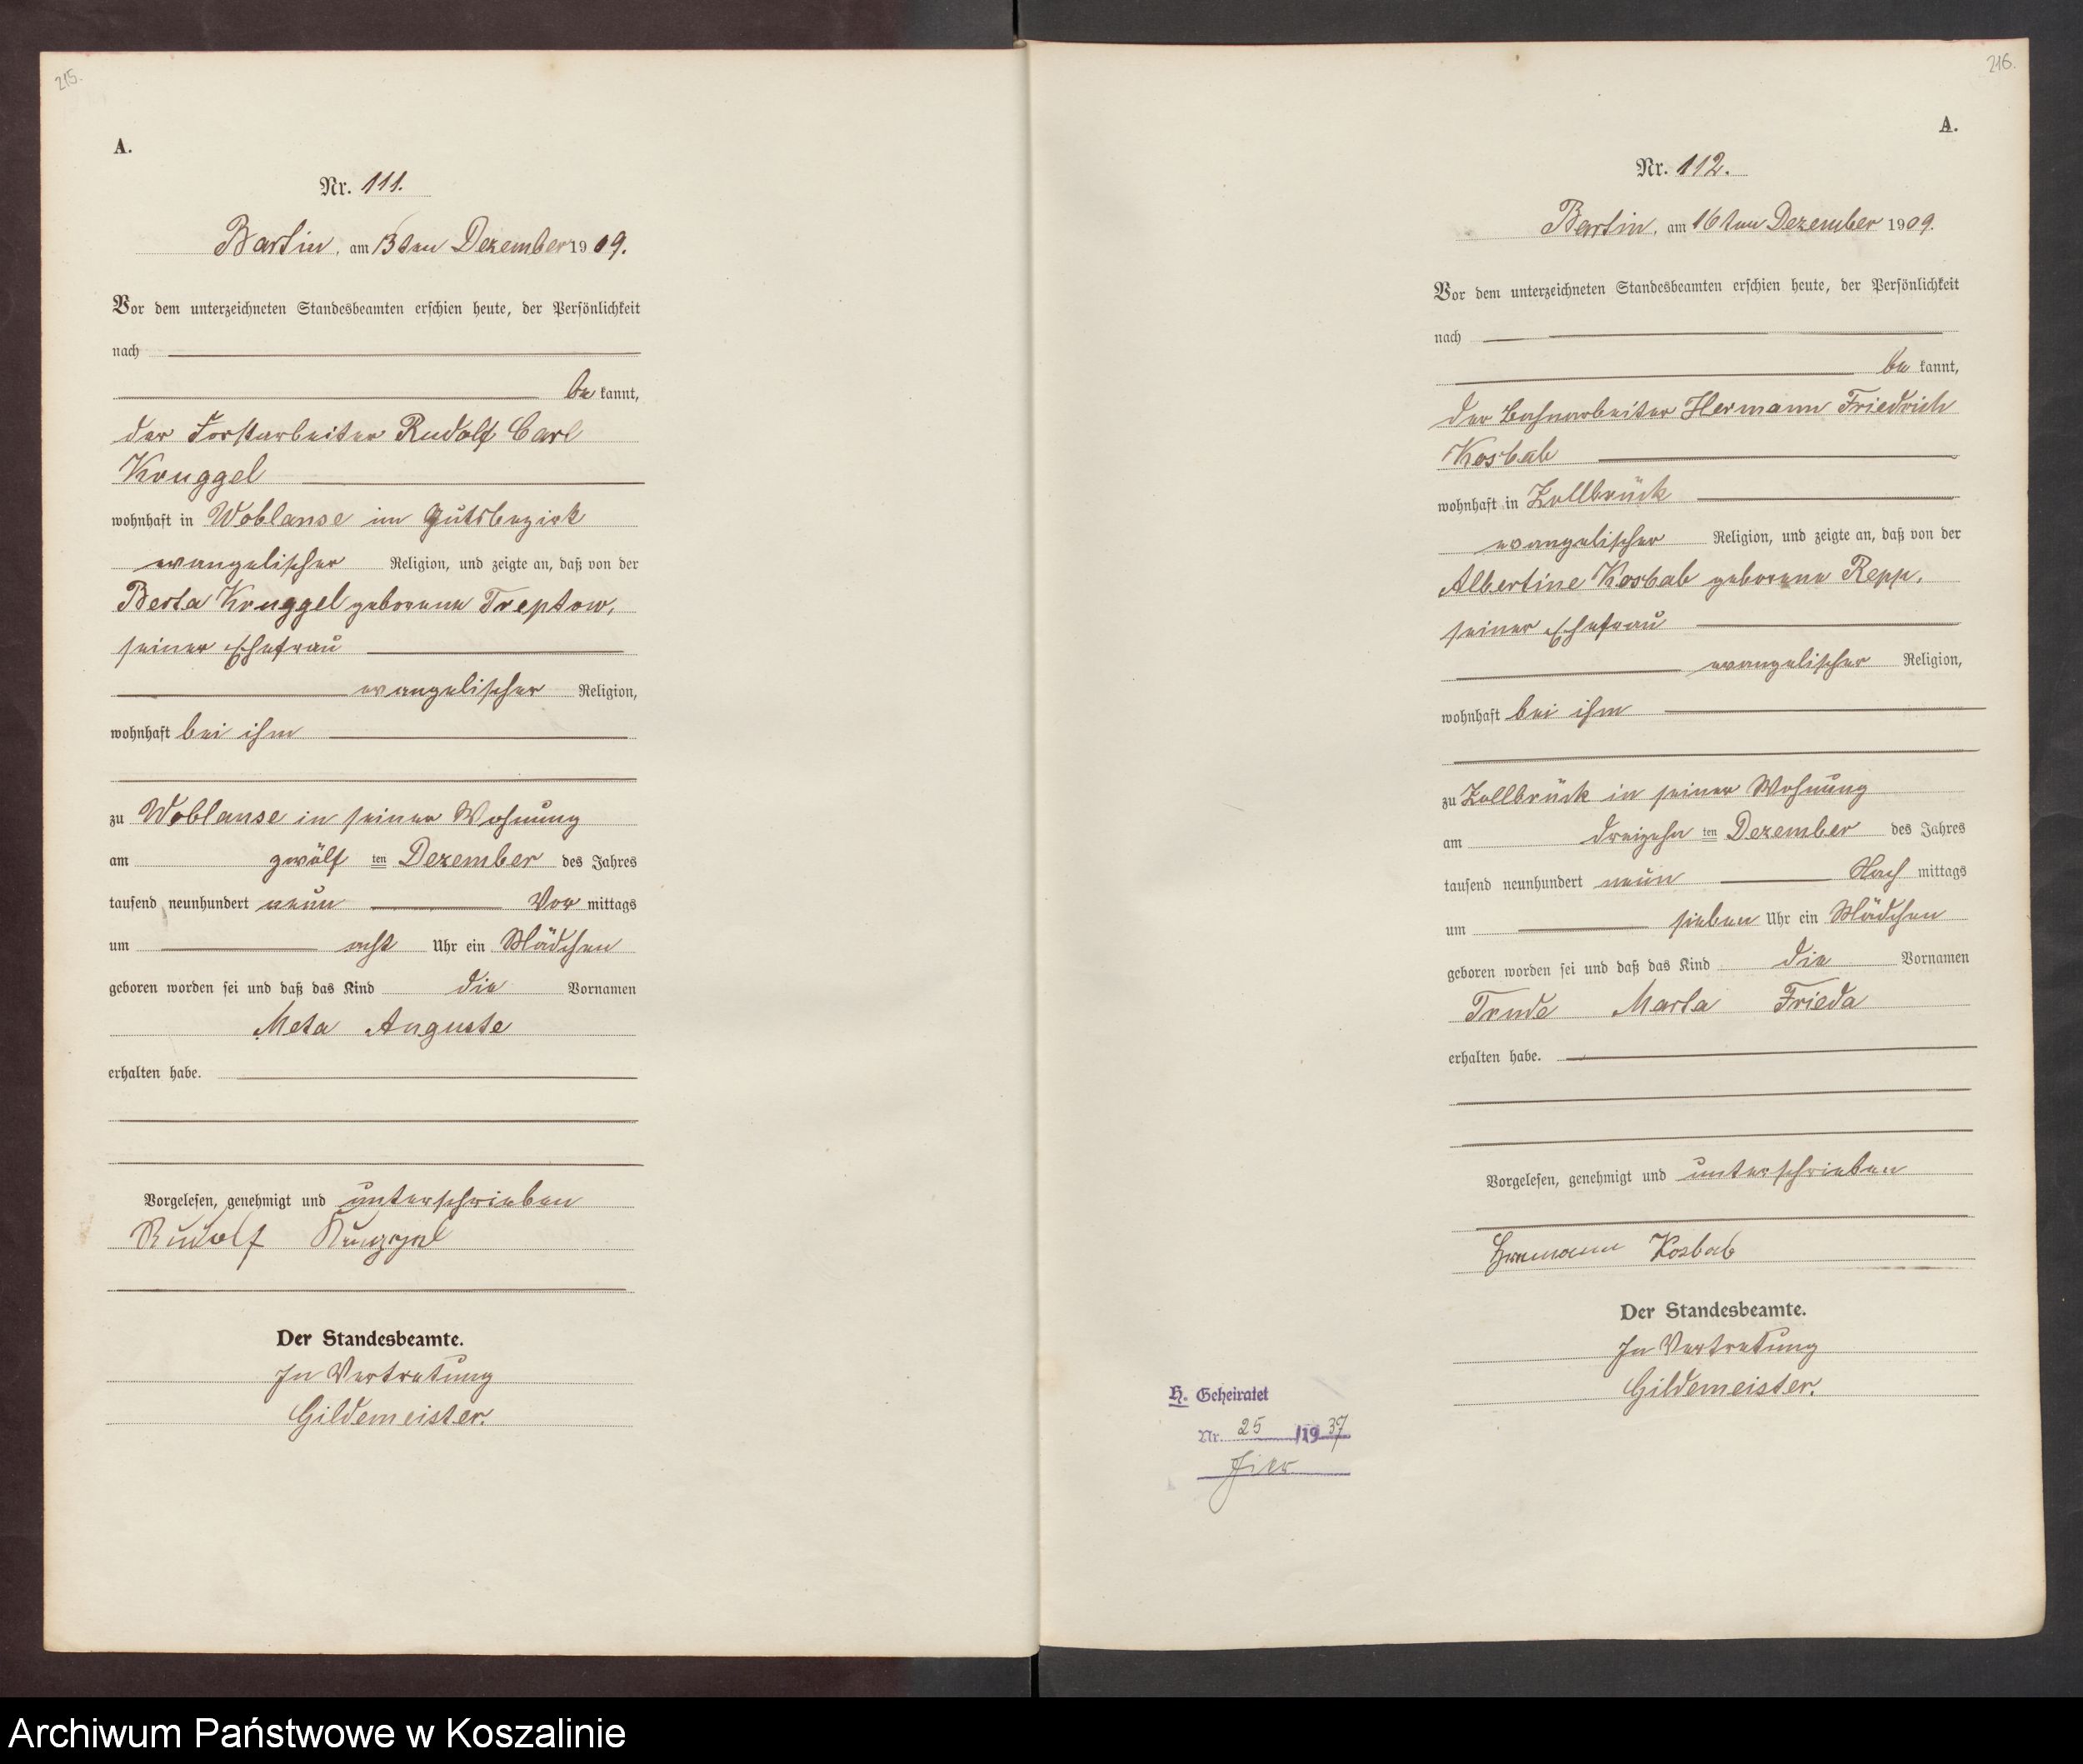 215.
A.
Nr. 111.
Bartin, am 13ten Dezember 1909.
Vor dem unterzeichneten Standesbeamten erschien heute, der Persönlichkeit
nach
be kannt,
der Forstarbeiter Rudolf Carl
Kruggel
wohnhaft in Woblanse im Gutsbezirk
evangelischer Religion, und zeigte an, daß von der
Berta Kruggel geborene Treptow,
seiner Ehefrau
evangelischer Religion,
wohnhaft bei ihm
zu Woblanse in seiner Wohnung
am zwölf ten Dezember des Jahres
tausend neunhundert neun Vor mittags
um acht Uhr ein Mädchen
geboren worden sei und daß das Kind die Vornamen
Meta Auguste
erhalten habe.
Vorgelesen, genehmigt und unterschrieben
Rudolf Kruggel
Der Standesbeamte.
In Vertretung
Gildemeister.
216.
A.
Nr. 112.
Bartin, am 16ten Dezember 1909.
Vor dem unterzeichneten Standesbeamten erschien heute, der Persönlichkeit
nach
be kannt,
der Bahnarbeiter Hermann Friedrich
Kosbab
wohnhaft in Zollbrück
evangelischer Religion, und zeigte an, daß von der
Albertine Kosbab geborene Repp,
seiner Ehefrau
evangelischer Religion,
wohnhaft bei ihm
zu Zollbrück in seiner Wohnung
am dreizehn ten Dezember des Jahres
tausend neunhundert neun Nach mittags
um sieben Uhr ein Mädchen
geboren worden sei und daß das Kind die Vornamen
Trude Marta Frieda
erhalten habe.
Vorgelesen, genehmigt und unterschrieben
Hermann Kosbab
Der Standesbeamte.
In Vertretung
Gildemeister.
H. Geheiratet
Nr. 25 /1937
hier
Archiwum Państwowe w Koszalinie